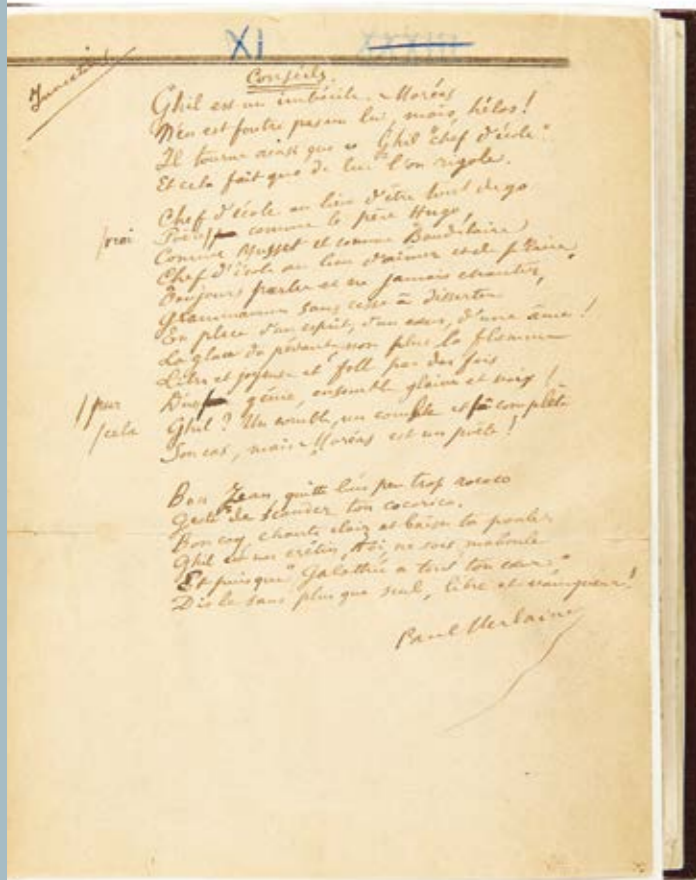 XI XXXIII
Invectives
Conseils.
Ghil est un imbécile. Moréas
N'en est foutre pas un lui, mais, hélas!
Il tourne ainsi que ce Ghil "chef d'école"
Et cela fait que de lui l'on rigole.
Chef d'école au lieu d'être tout de go
/vrai Poète comme le père Hugo,
Comme Musset et comme Baudelaire,
Chef d'école au lieu d'aimer et de plaire,
Toujours parler et ne jamais chanter,
Grammairien sans cesse à disserter
En place d'un esprit, d'un cœur, d'une âme!
La glace du pédant, non plus la flamme
Libre et joyeuse et folle par des fois
/pur D'un génie, ensemble glaive et voix!
/cela Ghil? Un comble, un comble et complète
Son cas, mais Moréas est un poète!
Bon Jean, quitte un peu trop rococo
Geste de scander ton cocorico.
Bon coq, chante clair et baise ta poule
Ghil est un crétin, toi, ne sois maboule
Et puisque "Galathée a tout ton cœur,"
Dis le sans plus que seul, libre et vainqueur!
Paul Verlaine